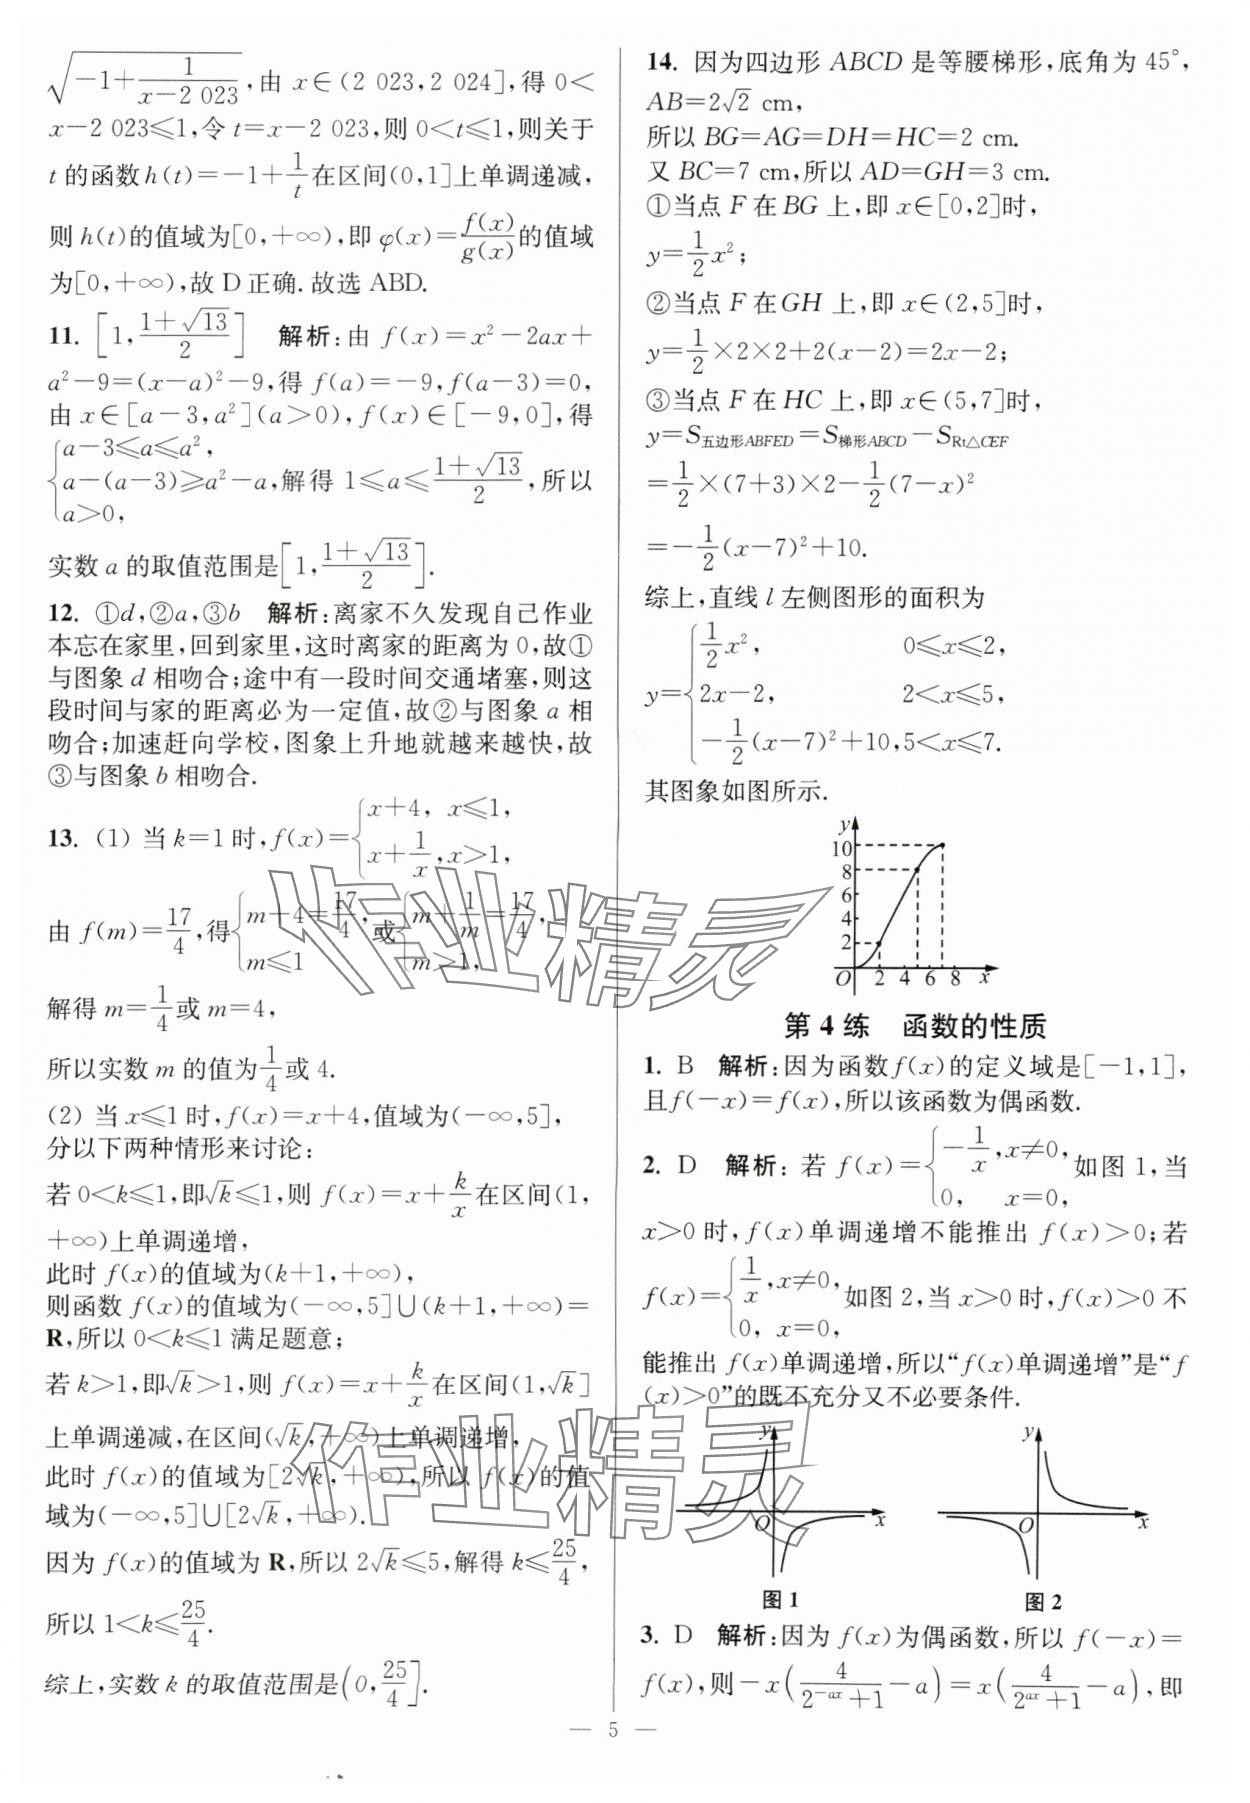 √(-1+1/(x-2 023)),由 x∈(2 023,2 024],得 0<
x-2 023≤1,令 t=x-2 023,则 0<t≤1,则关于
t 的函数 h(t)=-1+1/t 在区间(0,1]上单调递减,
则 h(t)的值域为[0,+∞),即 φ(x)=f(x)/g(x)的值域
为[0,+∞),故 D 正确.故选 ABD.
11. [1,(1+√13)/2] 解析:由 f(x)=x²-2ax+
a²-9=(x-a)²-9,得 f(a)=-9,f(a-3)=0,
由 x∈[a-3,a²](a>0),f(x)∈[-9,0],得
{a-3≤a≤a²,
a-(a-3)≥a²-a,解得 1≤a≤(1+√13)/2,所以
a>0,
实数 a 的取值范围是[1,(1+√13)/2].
12. ①d,②a,③b 解析:离家不久发现自己作业
本忘在家里,回到家里,这时离家的距离为 0,故①
与图象 d 相吻合;途中有一段时间交通堵塞,则这
段时间与家的距离必为一定值,故②与图象 a 相
吻合;加速赶向学校,图象上升地就越来越快,故
③与图象 b 相吻合.
13. (1) 当 k=1 时,f(x)={x+4, x≤1,
x+1/x,x>1,
由 f(m)=17/4,得{m+4=17/4, m≤1 或{m+1/m=17/4, m>1,
解得 m=1/4 或 m=4,
所以实数 m 的值为 1/4 或 4.
(2) 当 x≤1 时,f(x)=x+4,值域为(-∞,5],
分以下两种情形来讨论:
若 0<k≤1,即√k≤1,则 f(x)=x+k/x 在区间(1,
+∞)上单调递增,
此时 f(x)的值域为(k+1,+∞),
则函数 f(x)的值域为(-∞,5]∪(k+1,+∞)=
R,所以 0<k≤1 满足题意;
若 k>1,即√k>1,则 f(x)=x+k/x 在区间(1,√k]
上单调递减,在区间(√k,+∞)上单调递增,
此时 f(x)的值域为[2√k,+∞),所以 f(x)的值
域为(-∞,5]∪[2√k,+∞).
因为 f(x)的值域为 R,所以 2√k≤5,解得 k≤25/4,
所以 1<k≤25/4.
综上,实数 k 的取值范围是(0,25/4].
14. 因为四边形 ABCD 是等腰梯形,底角为 45°,
AB=2√2 cm,
所以 BG=AG=DH=HC=2 cm.
又 BC=7 cm,所以 AD=GH=3 cm.
①当点 F 在 BG 上,即 x∈[0,2]时,
y=1/2 x²;
②当点 F 在 GH 上,即 x∈(2,5]时,
y=1/2×2×2+2(x-2)=2x-2;
③当点 F 在 HC 上,即 x∈(5,7]时,
y=S五边形ABFED=S梯形ABCD-SRt△CEF
=1/2×(7+3)×2-1/2(7-x)²
=-1/2(x-7)²+10.
综上,直线 l 左侧图形的面积为
y={1/2 x², 0≤x≤2,
2x-2, 2<x≤5,
-1/2(x-7)²+10,5<x≤7.
其图象如图所示.
y
10
8
6
4
2
O 2 4 6 8 x
第 4 练 函数的性质
1. B 解析:因为函数 f(x)的定义域是[-1,1],
且 f(-x)=f(x),所以该函数为偶函数.
2. D 解析:若 f(x)={-1/x,x≠0,
0, x=0, 如图 1,当
x>0 时,f(x)单调递增不能推出 f(x)>0;若
f(x)={1/x,x≠0,
0, x=0, 如图 2,当 x>0 时,f(x)>0 不
能推出 f(x)单调递增,所以“f(x)单调递增”是“f
(x)>0”的既不充分又不必要条件.
y
O x
图 1
y
O x
图 2
3. D 解析:因为 f(x)为偶函数,所以 f(-x)=
f(x),则-x(4/(2⁻ᵃˣ+1)-a)=x(4/(2ᵃˣ+1)-a),即
— 5 —
作业精灵
作业精灵